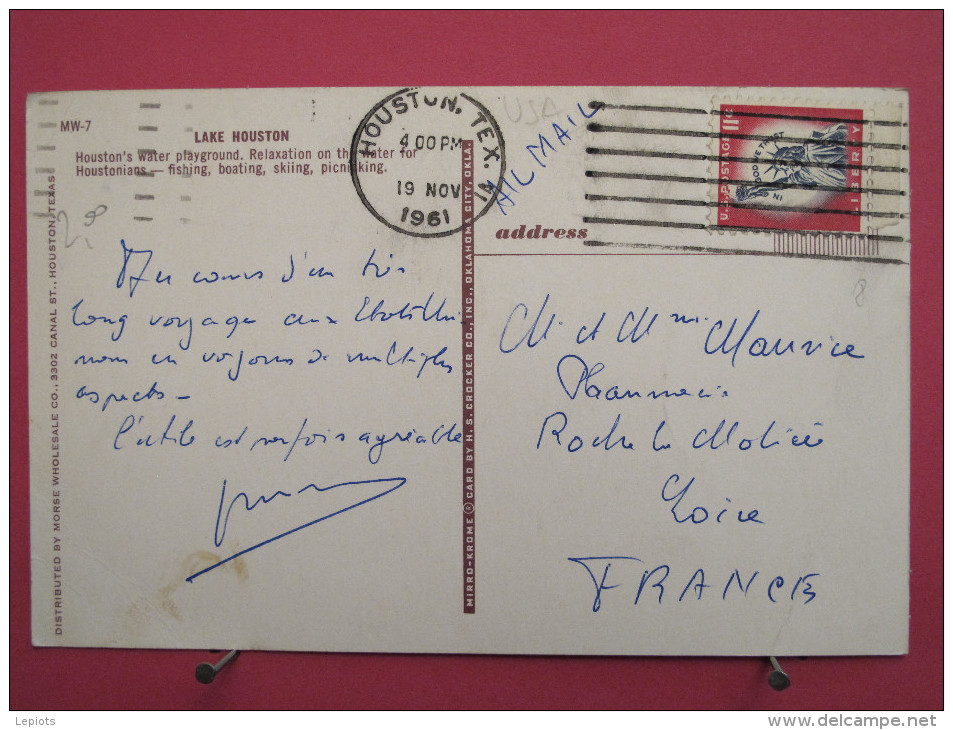 MW-7
LAKE HOUSTON
Houston's water playground. Relaxation on the water for
Houstonians — fishing, boating, skiing, picnicking.
HOUSTON, TEX.
4 00 PM
19 NOV
1961
USA
AIL MAIL
U.S. POSTAGE 11c
IN GOD WE TRUST
LIBERTY
address
Au cours d'un très
long voyage aux
nous en voyons de multiples
aspects -
L'utile est parfois agréable
M. et Mme Maurice
Pharmacie
Roche la Molière
Loire
FRANCE
DISTRIBUTED BY MORSE WHOLESALE CO., 3302 CANAL ST., HOUSTON, TEXAS
MIRRO-KROME ® CARD BY H. S. CROCKER CO., INC., OKLAHOMA CITY, OKLA.
8
Lepiots
www.delcampe.net